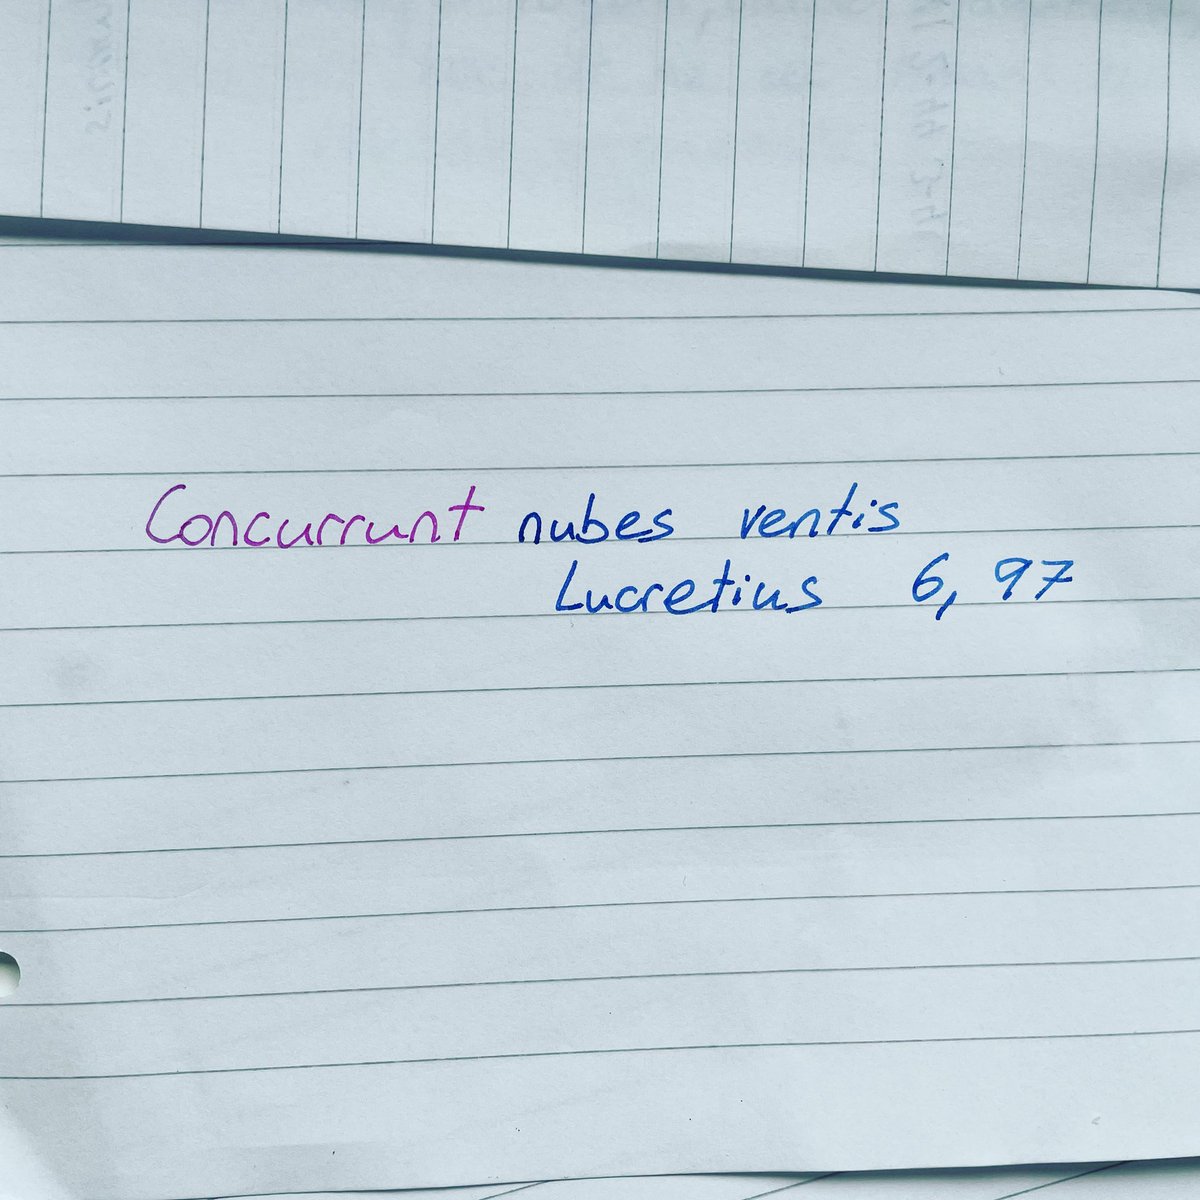 Concurrunt nubes ventis
Lucretius 6, 97